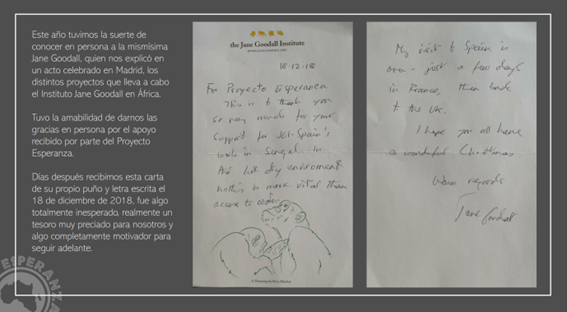 Este año tuvimos la suerte de
conocer en persona a la mismísima
Jane Goodall, quien nos explicó en
un acto celebrado en Madrid, los
distintos proyectos que lleva a cabo
el Instituto Jane Goodall en África.
Tuvo la amabilidad de darnos las
gracias en persona por el apoyo
recibido por parte del Proyecto
Esperanza.
Días después recibimos esta carta
de su propio puño y letra escrita el
18 de diciembre de 2018, fue algo
totalmente inesperado, realmente un
tesoro muy preciado para nosotros y
algo completamente motivador para
seguir adelante.
ESPERANZA
the Jane Goodall Institute
18-12-18
For Proyecto Esperanza
This is to thank you
so very much for your
support for JGI-Spain's
work in Senegal. In
hot dry enviroment
nothing is more vital than
access to water.
My visit to Spain is
over - just a few days
in France, then back
to the UK.
I hope you all have
a wonderful Christmas
regards
Jane Goodall